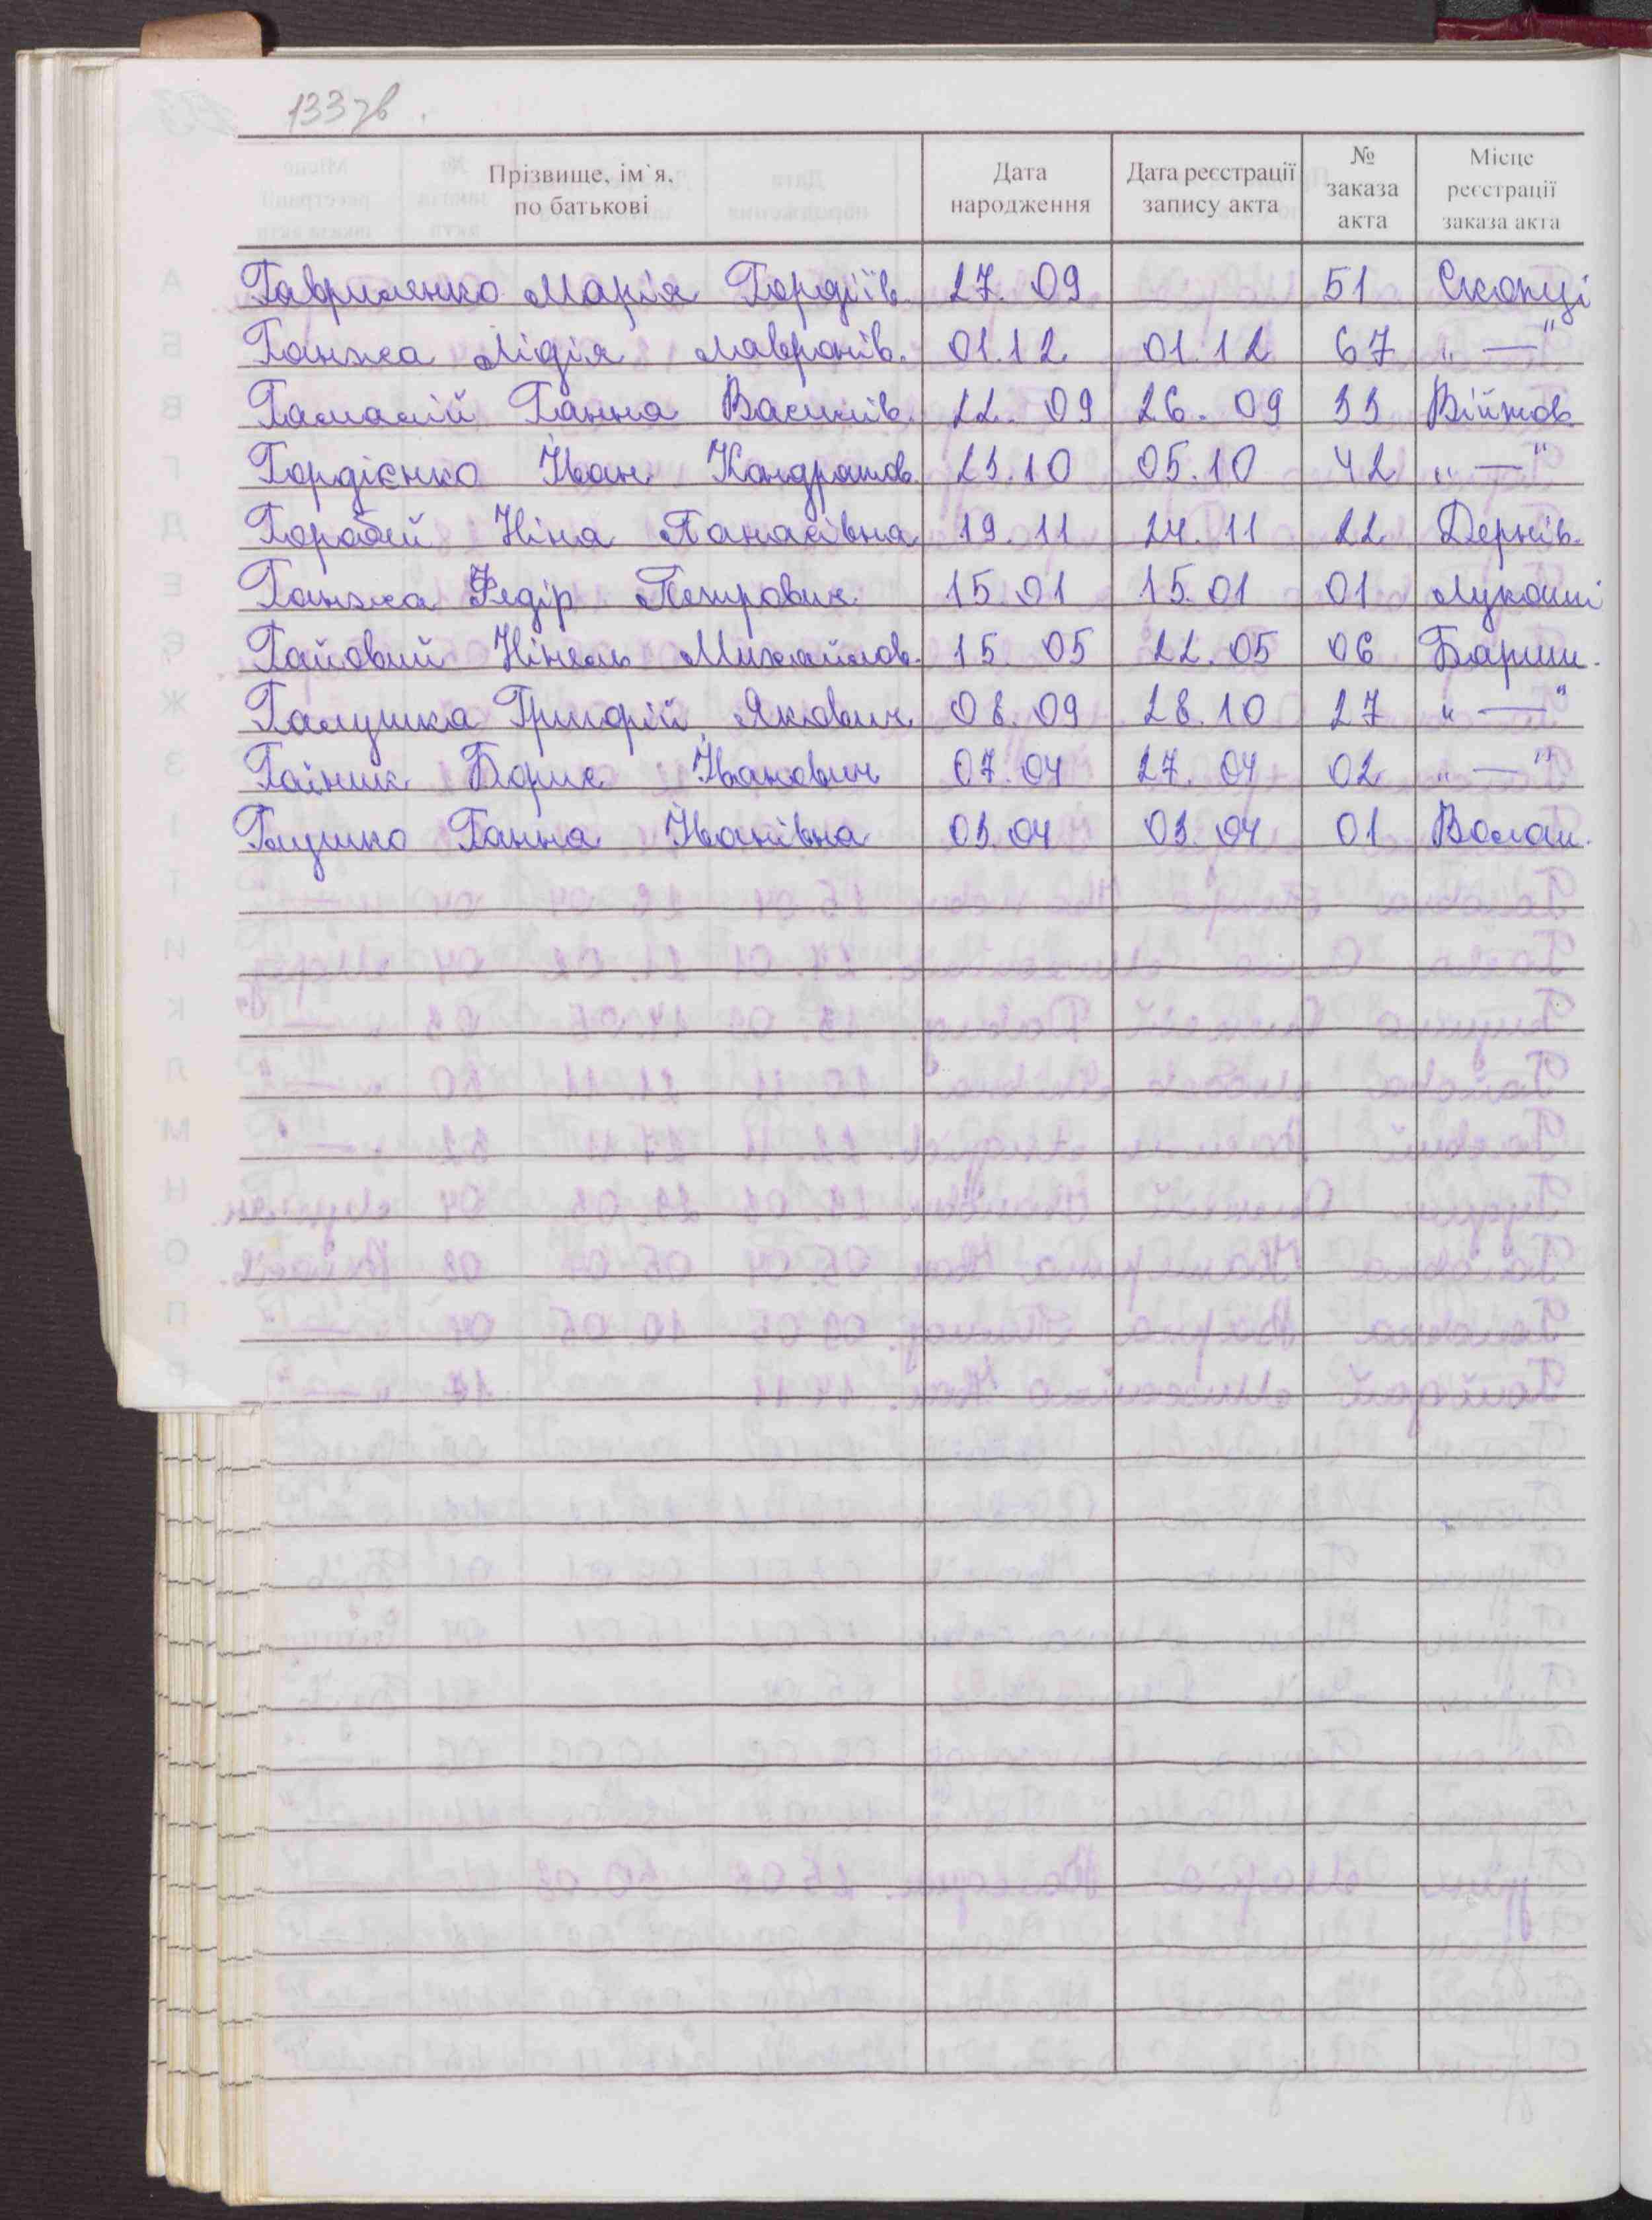 133 зв.
Прізвище, ім`я, по батькові | Дата народження | Дата реєстрації запису акта | № заказа акта | Місце реєстрації заказа акта
Гавриленко Марія Гордіїв. 27. 09 51 Скопці
Ганжа Лідія Лавронів. 01.12 01.12 67 " — "
Гамалій Ганна Василів. 22. 09 26. 09 33 Війтов.
Гордієнко Іван Кондратов. 23.10 05.10 42 " — "
Горобей Ніна Панасівна 19. 11 24. 11 22 Дернів.
Ганжа Федір Петрович 15. 01 15. 01 01 Лукаші
Гайовий Нінель Михайлов. 15. 05 22. 05 06 Бариш.
Галушка Григорій Якович 08. 09 28. 10 27 " — "
Гаїник Борис Іванович 07. 04 27. 04 02 " — "
Глушко Ганна Іванівна 03. 04 03. 04 01 Волош.